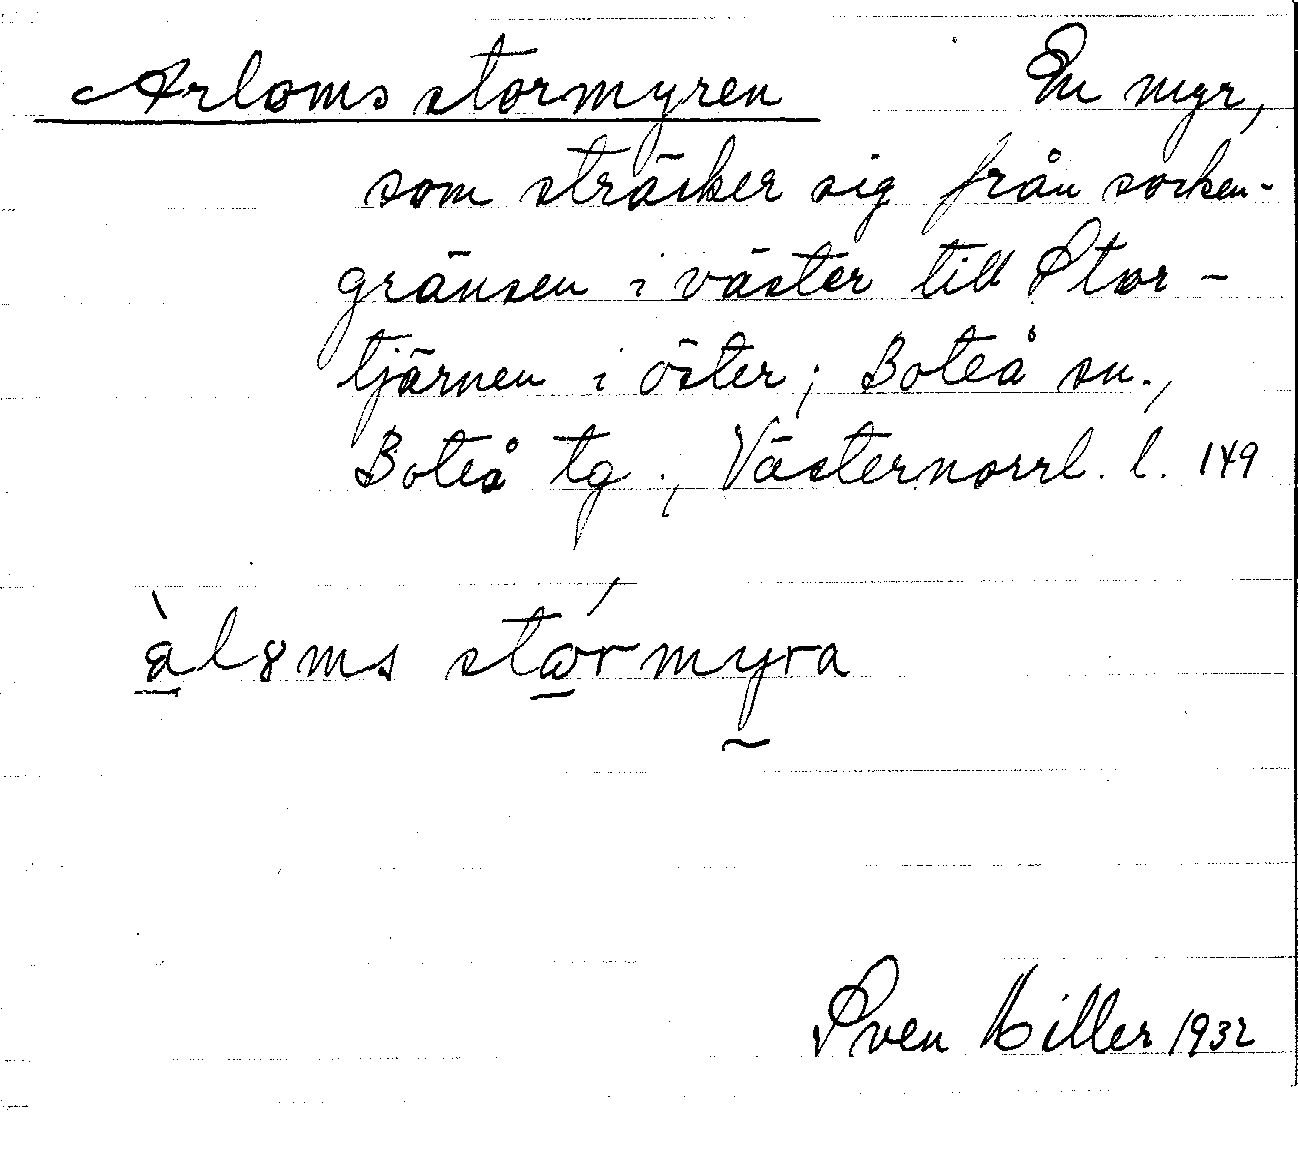 Arloms stormyren En myr,
som sträcker sig från socken-
gränsen i väster till Stor-
tjärnen i öster; Boteå sn.,
Boteå tg., Västernorrl. l. 149
àl8ms stǿrmyra
Sven Hiller 1932